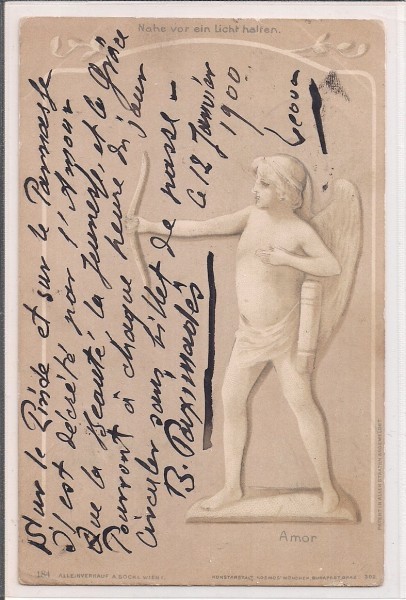 Nahe vor ein Licht halten.
Sur le Pinde et sur le Parnasse
Il est décrété par l'Amour
Que la Beauté la Jeunesse et la Grâce
Pourront à chaque heure du jour
Circuler sans billet de passe –
Ce 12 Janvier
1900
Amor
184 ALLEINVERKAUF A. WIEN I.
KUNSTANSTALT KOSMOS MÜNCHEN BUDAPEST